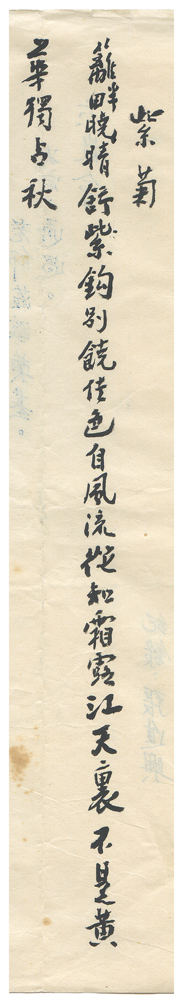 紫菊
籬畔曉晴舒紫鈎別饒佳色自風流從知霜露江天裏不是黃
華獨占秋